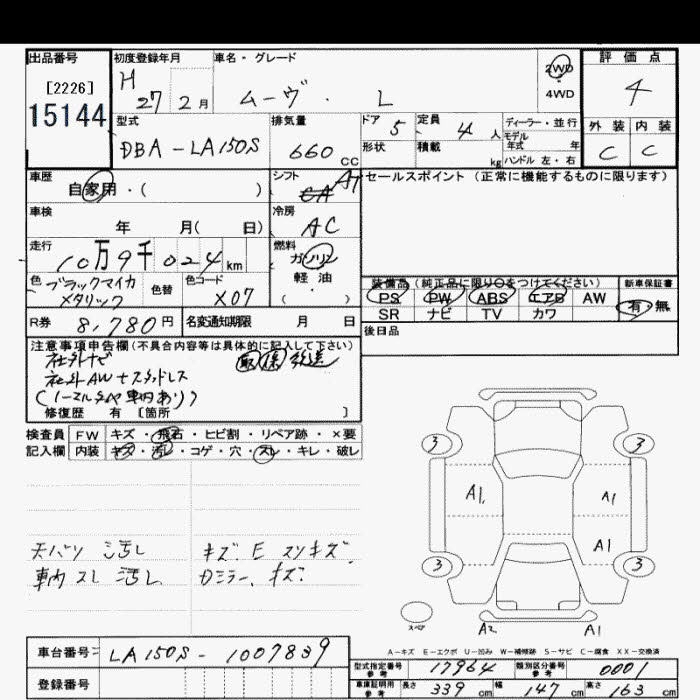 出品番号
[2226]
15144
初度登録年月
H 27 2 月
車名・グレード
ムーヴ. L
2WD
4WD
評価点
4
型式
DBA-LA150S
排気量
660 CC
ドア 5
定員 4 人
形状
積載 kg
ディーラー・並行
モデル年式 年
ハンドル 左・右
外装 内装
C C
車歴
自家用・( )
シフト
CA AT
車検
年 月( 日)
冷房
AC
走行
10万9千024 km
燃料
ガソリン
軽油
( )
色 ブラックマイカメタリック
色替
色コード X07
R券 8,780 円
名変通知期限 月 日
セールスポイント(正常に機能するものに限ります)
装備品(純正品に限り○をつけてください)
PS PW ABS エアB AW
SR ナビ TV カワ
新車保証書
有・無
後日品
注意事項申告欄(不具合内容等は具体的に記入して下さい)
社外ナビ 取 保 後送
社外AW+スタッドレス
(ノーマルタイヤ車内あり)
修復歴 有 [箇所 ]
検査員記入欄
FW キズ・飛石・ヒビ割・リペア跡・×要
内装 キズ・汚レ・コゲ・穴・スレ・キレ・破レ
天バリ 汚レ
車内 スレ 汚レ
キズ. E スリキズ
ミラー、キズ.
3 3
A1. A1
A1
3 3
スペア
A2 A1
A-キズ E-エクボ U-凹み W-補修跡 S-サビ C-腐食 XX-交換済
車台番号 LA150S-1007839
登録番号
型式指定番号 参考 17964
類別区分番号 参考 0001
車庫証明用 参考 長さ 339 cm 幅 147 cm 高さ 163 cm